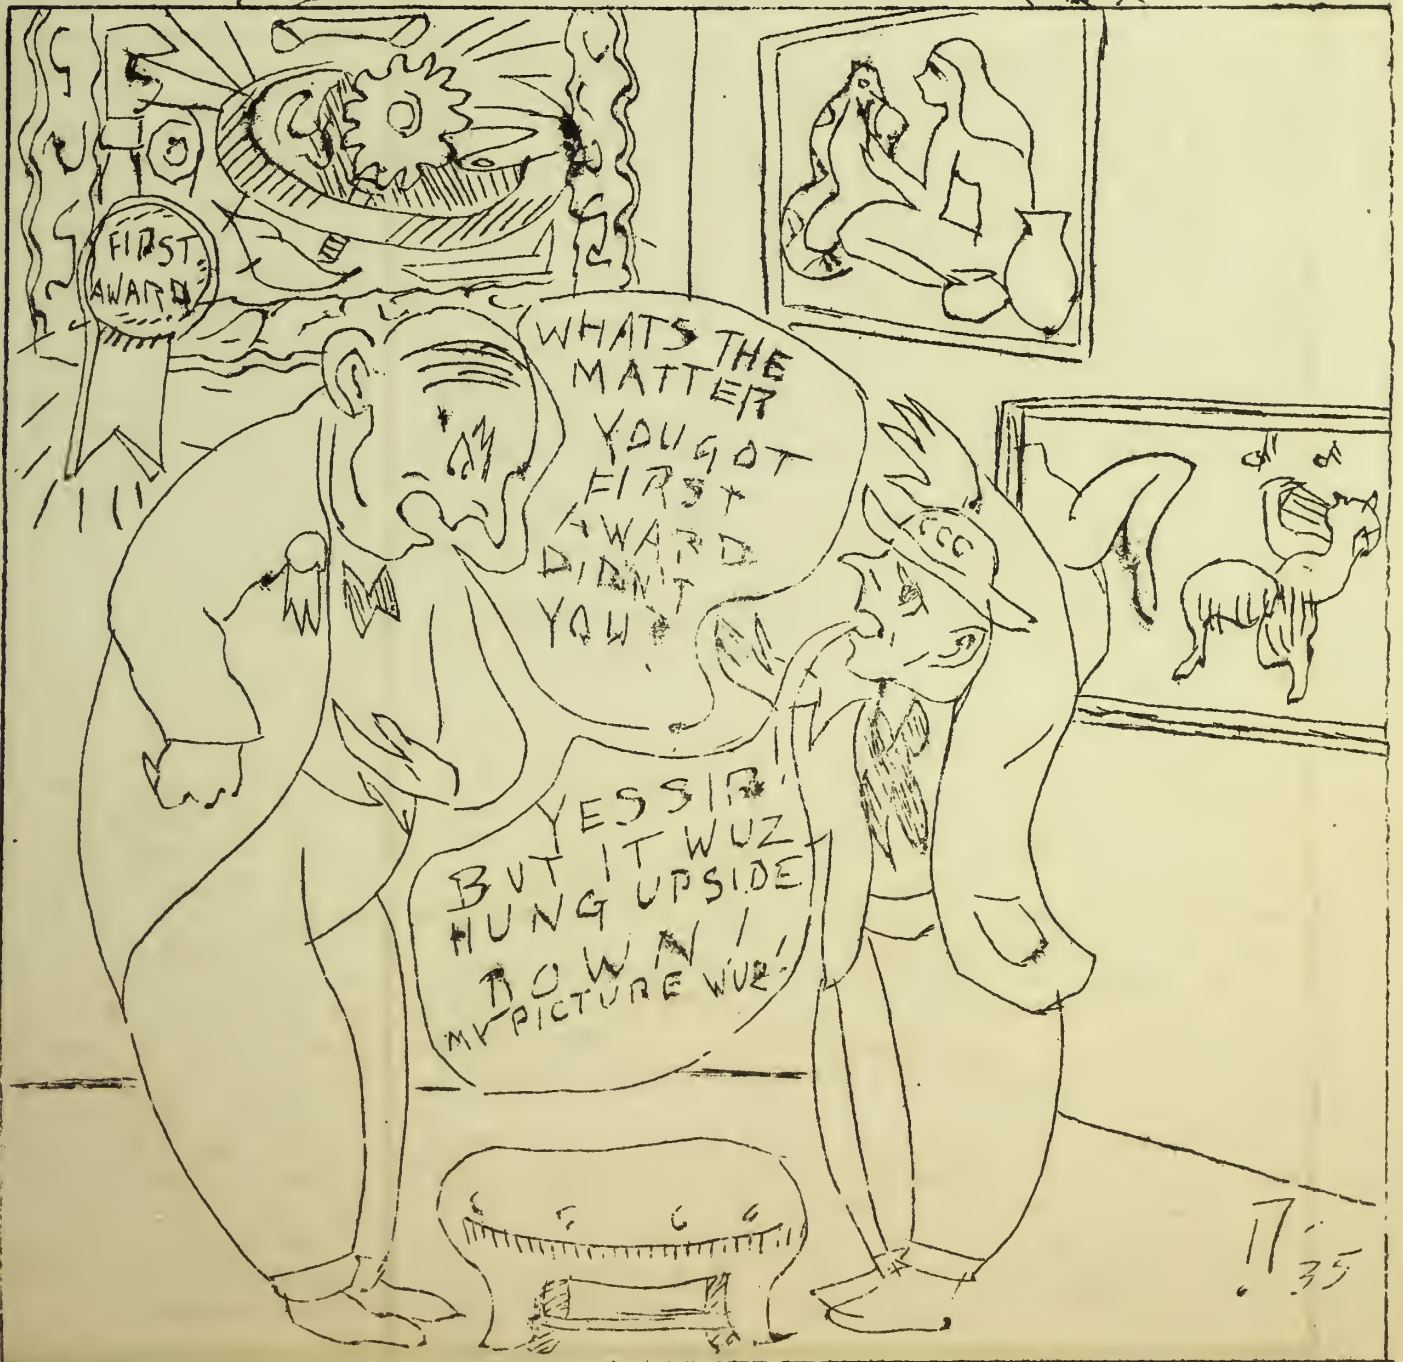 FIRST
AWARD
WHATS THE
MATTER
YOU GOT
FIRST
AWARD
DIDN'T
YOU?
YESSIR!
BUT IT WUZ
HUNG UPSIDE
DOWN!
MY PICTURE WUZ!
CCC
35